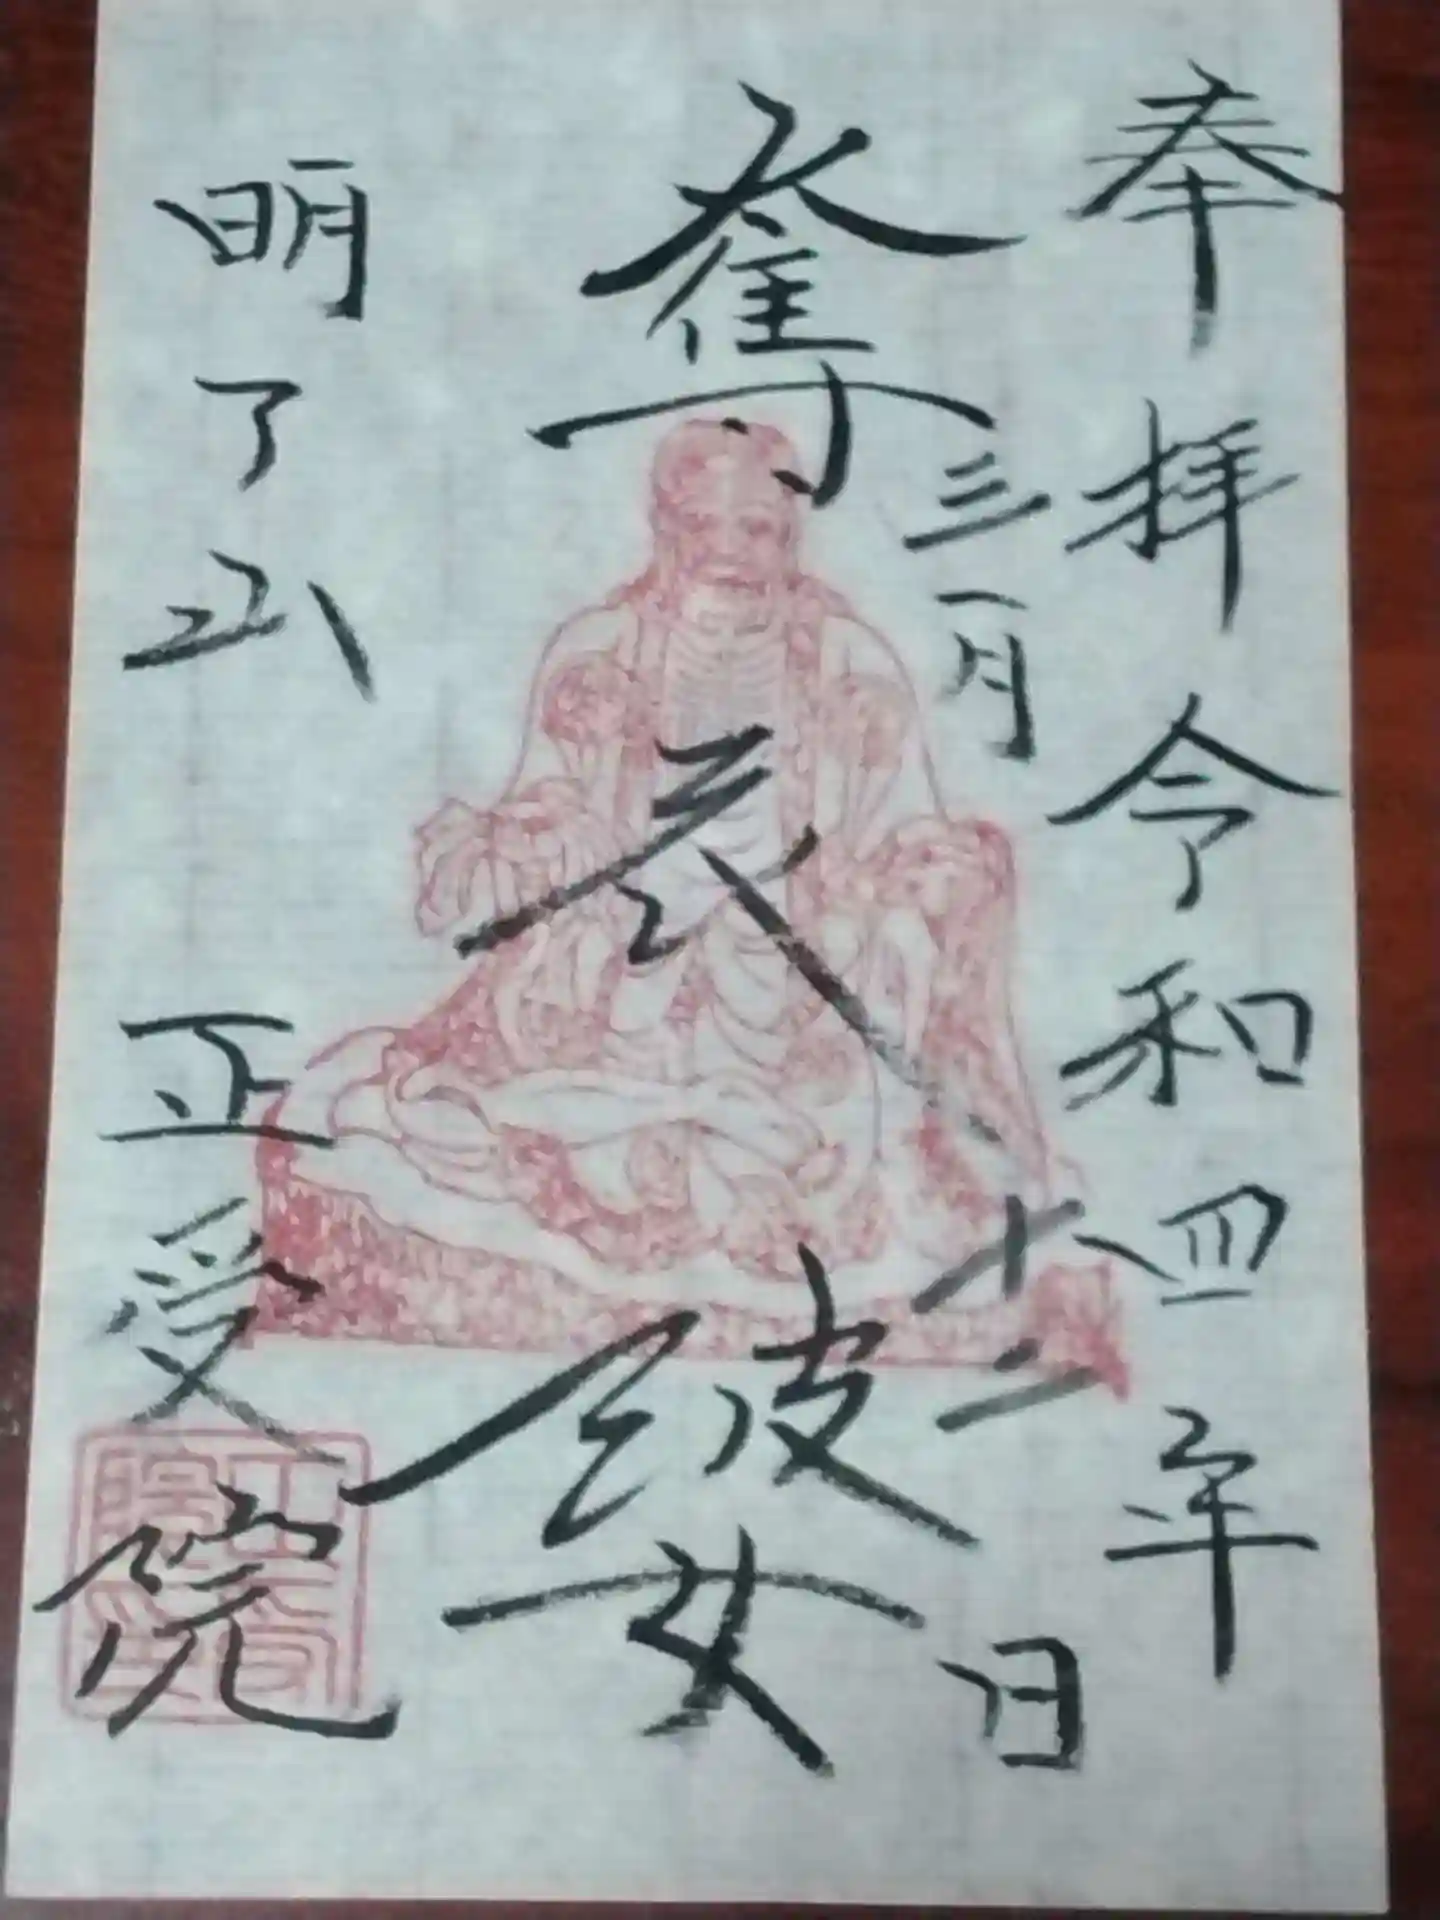 奉拝 令和四年
三月
日
奪衣婆
明了山 正受院